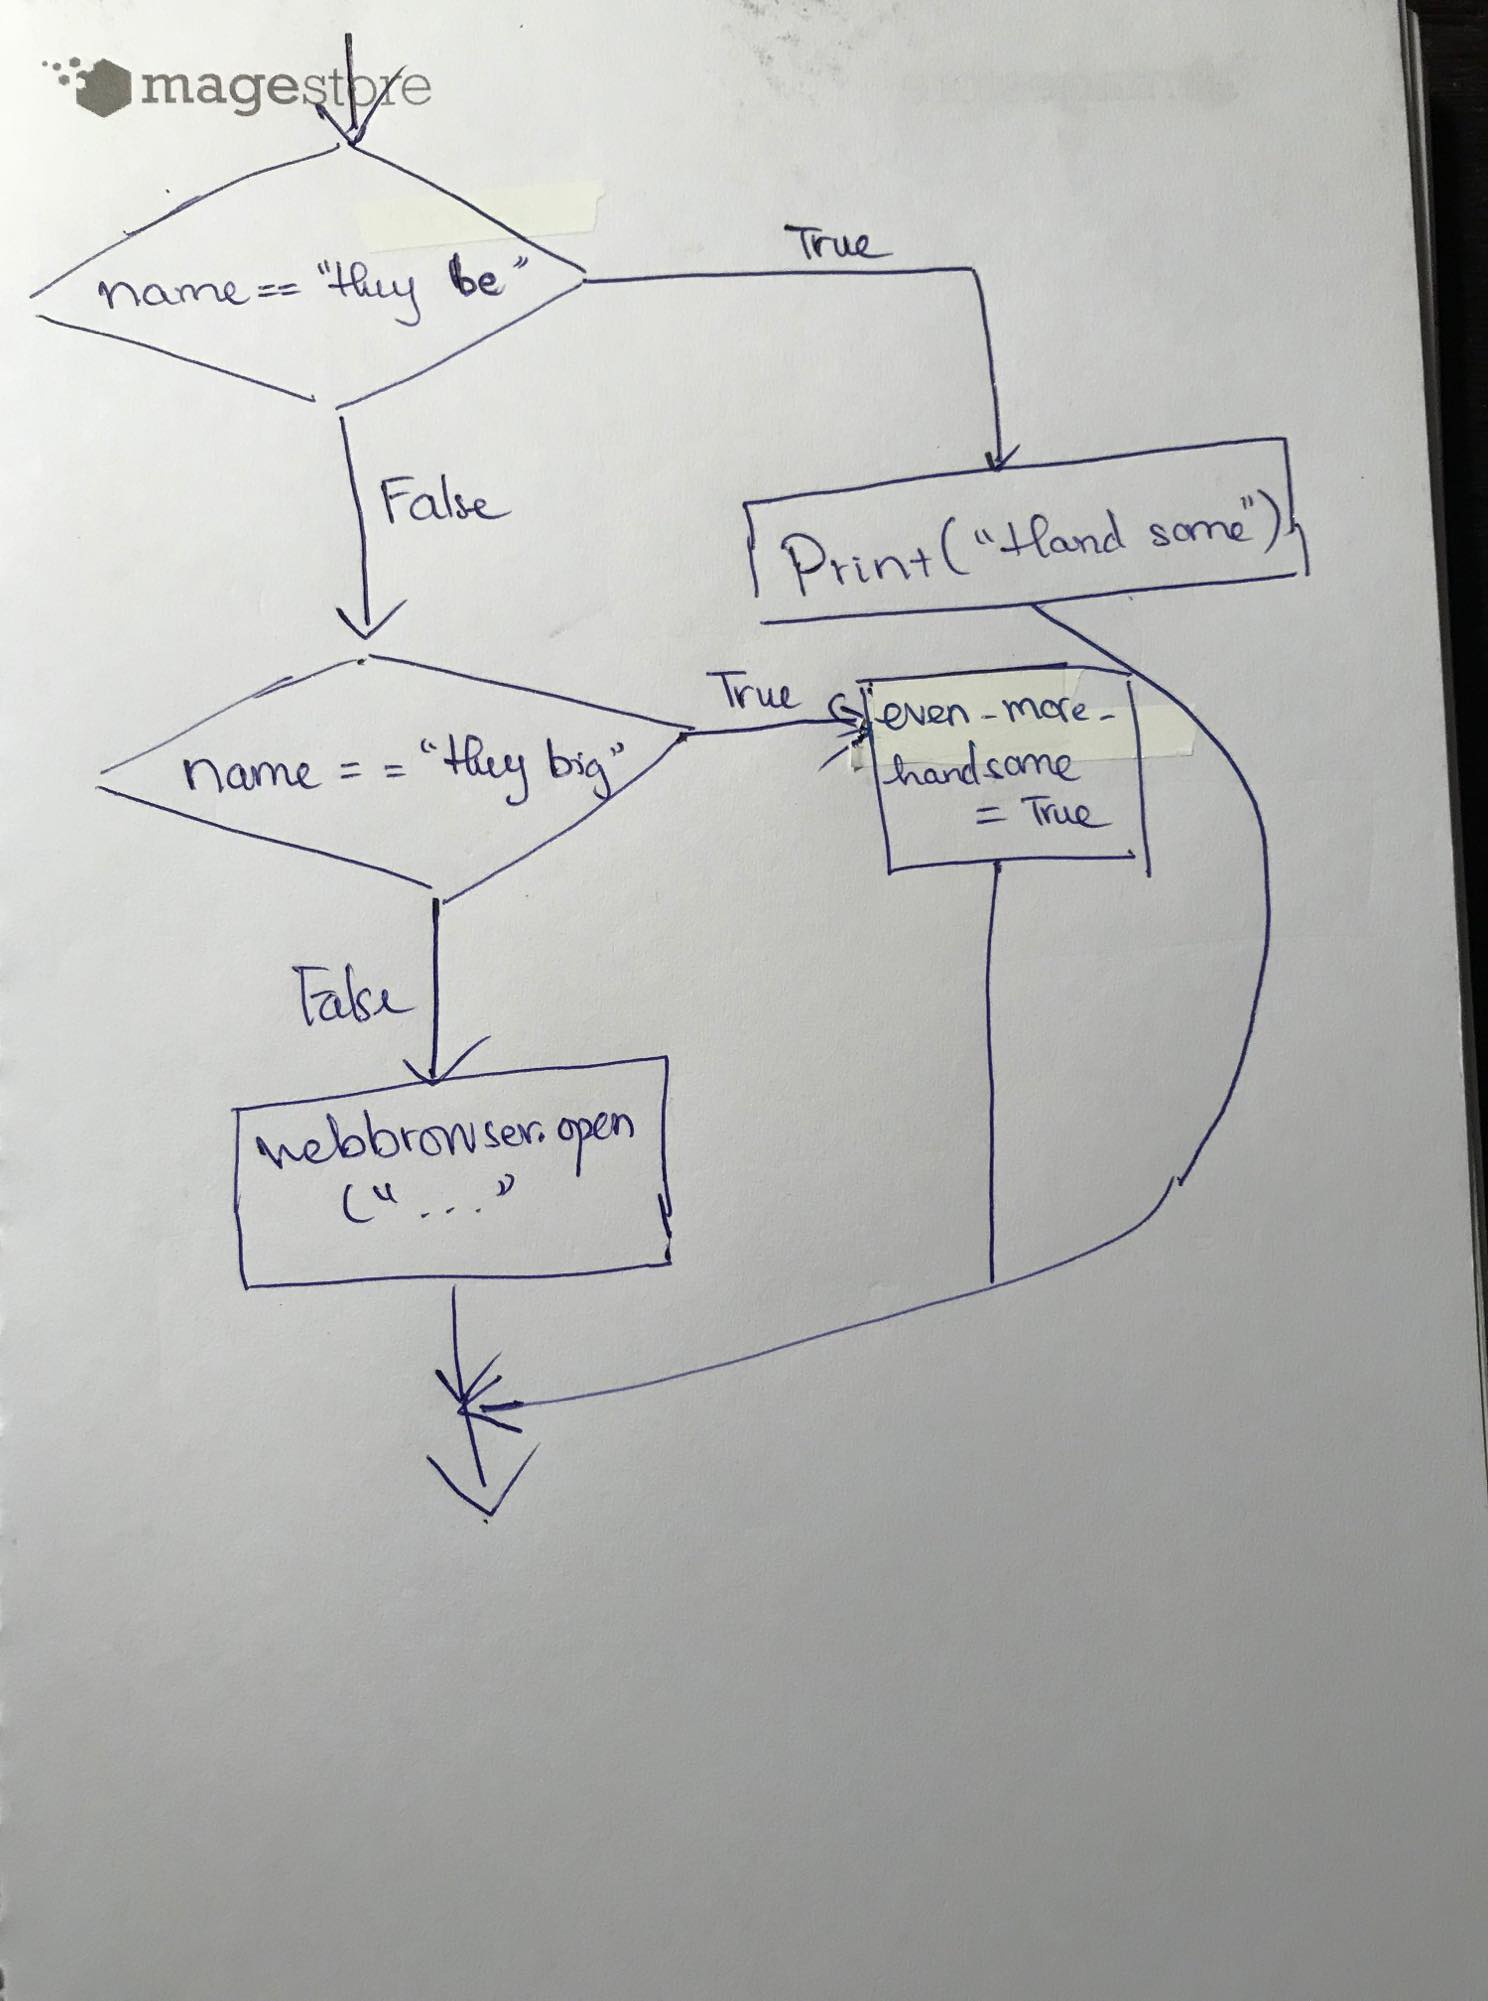 magestore
name == "thuy be"
True
False
Print("Hand some")
name == "thuy big"
True
even-more-
handsome
= True
False
webbrowser.open
("..."